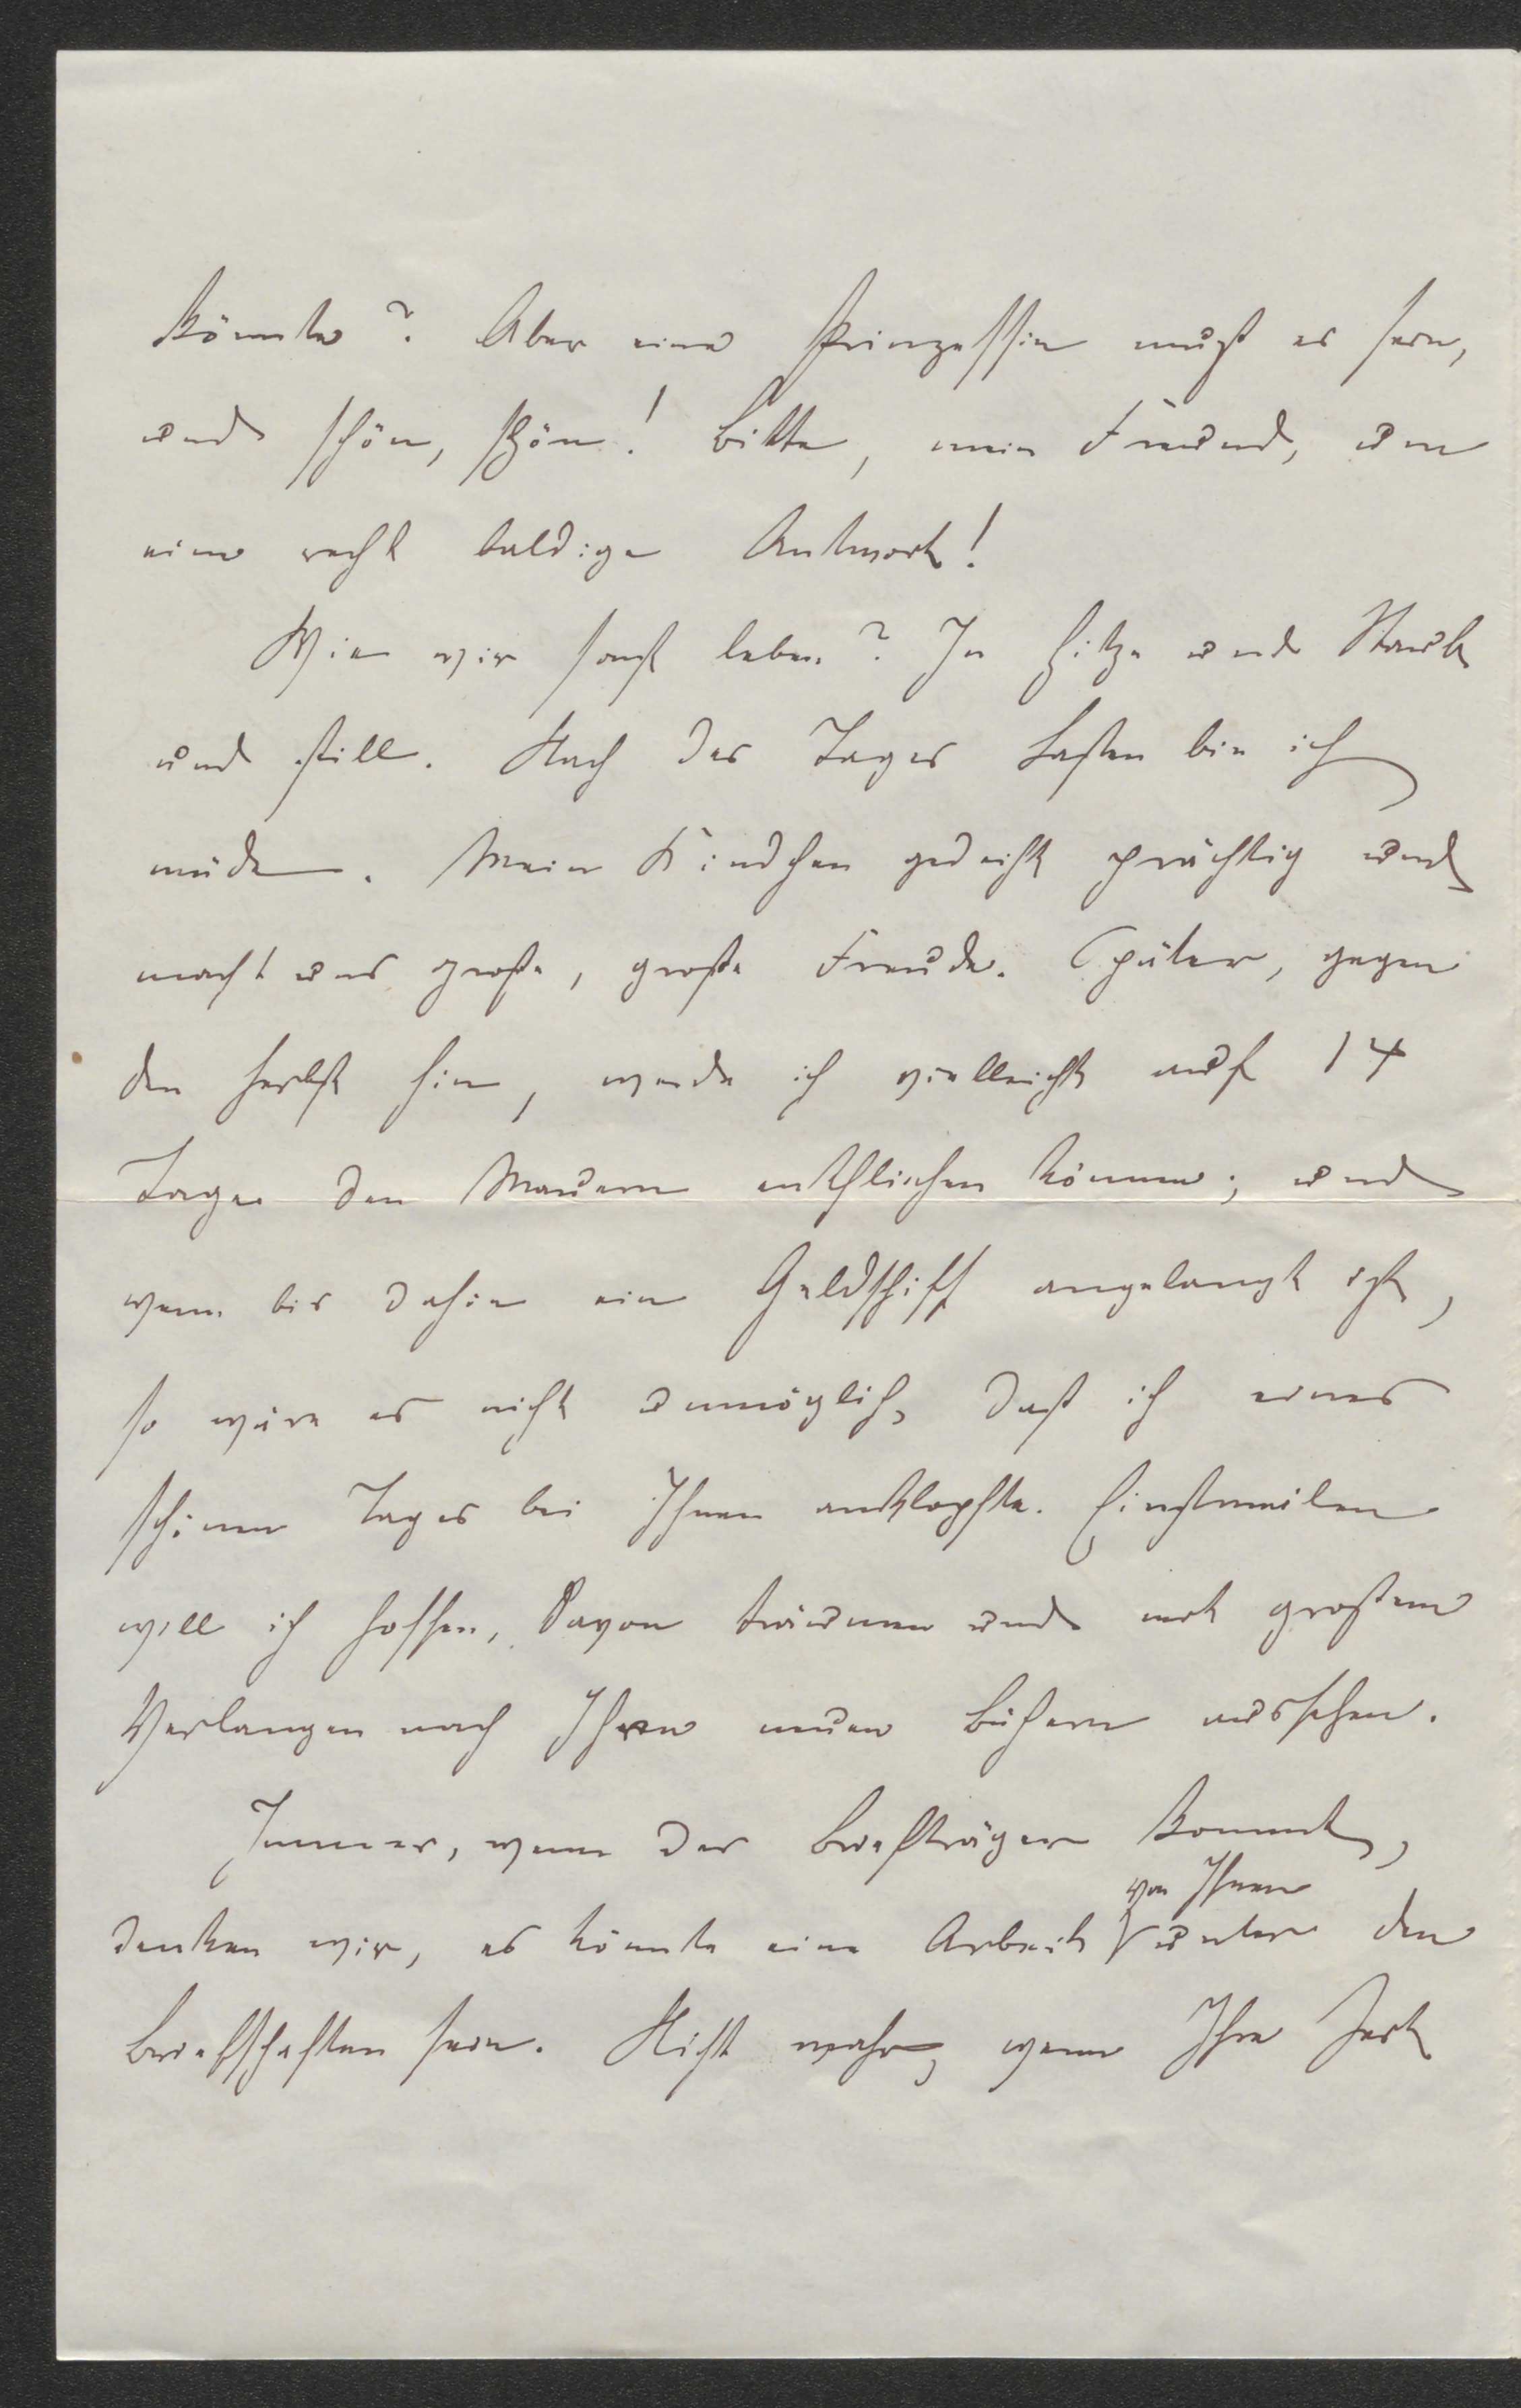 könnte? Aber eine Prinzessin muß es sein,
und schön, schön! Bitte, mein Freund, um
eine recht baldige Antwort!
Wie wir sonst leben? In Hitze und Staub
und still. Nach des Tages Lasten bin ich
müde. Mein Kindchen gedeiht prächtig und
macht uns große, große Freude. Später, gegen
den Herbst hin, werde ich vielleicht auf 14
Tage den Mauern entfliehen können; und
wenn bis dahin ein Geldschiff angelangt ist,
so wäre es nicht unmöglich, daß ich eines
schönen Tages bei Ihnen anklopfte. Einstweilen
will ich hoffen, davon träumen und mit großem
Verlangen nach Ihren neuen Büchern aussehen.
Immer, wenn der Briefträger kommt,
von Ihnen
denken wir, es könnte eine Arbeit unter den
Briefschaften sein. Nicht wahr, wenn Ihre Zeit